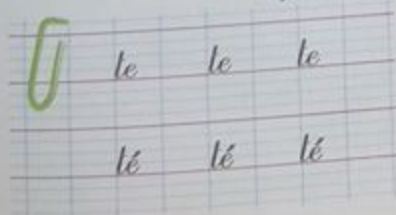 le le le
lé lé lé